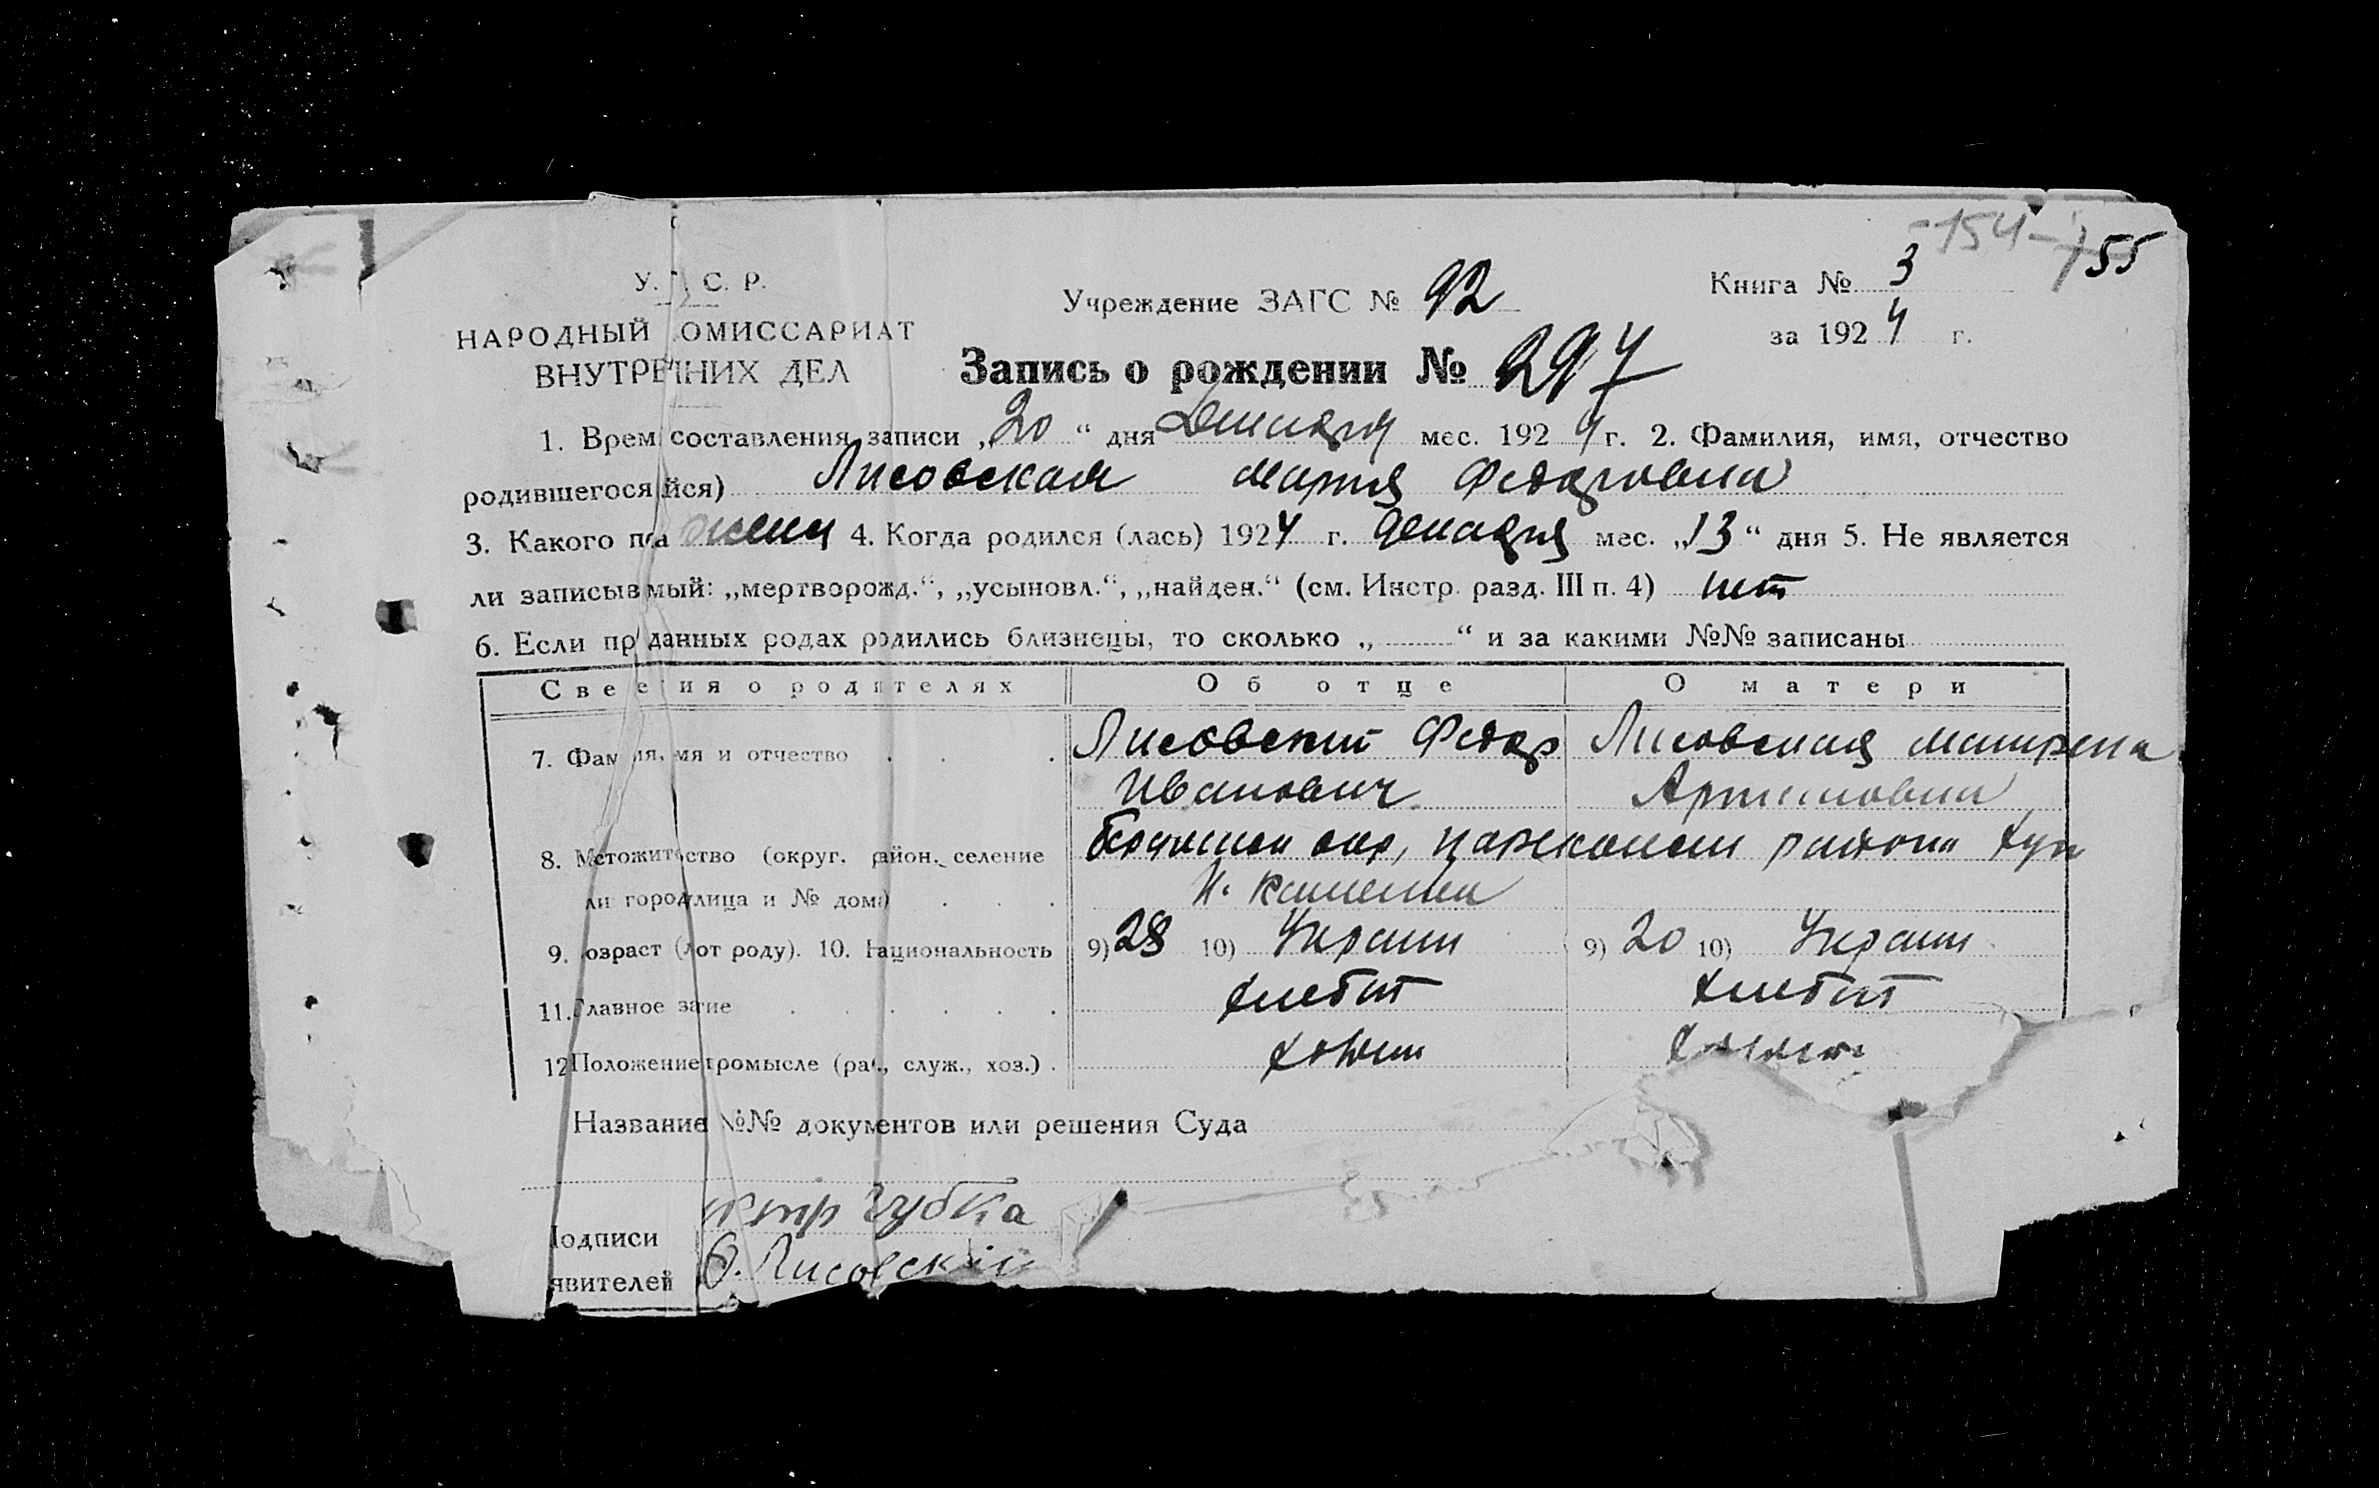 - 154 - 155
У. С. С. Р.
НАРОДНЫЙ КОМИССАРИАТ
ВНУТРЕННИХ ДЕЛ
Учреждение ЗАГС № 92
Книга № 3
за 1924 г.
Запись о рождении № 297
1. Время составления записи „20“ дня Декабря мес. 1924 г. 2. Фамилия, имя, отчество
родившегося (йся) Лисовская Мария Федоровна
3. Какого пола женск 4. Когда родился (лась) 1924 г. декабря мес. „13“ дня 5. Не является
ли записываемый: „мертворожд.“, „усыновл.“, „найден.“ (см. Инстр. разд. III п. 4) нет
6. Если при данных родах родились близнецы, то сколько „ “ и за какими №№ записаны
Сведения о родителях Об отце О матери
7. Фамилия, имя и отчество Лисовский Федор Лисовская Матрена
Иванович Артимовна
8. Местожительство (округ. район. селение окр, района хут
или город улица и № дома) Н.
9. Возраст (лет от роду). 10. Национальность 9) 28 10) Украин 9) 20 10) Украин
11. Главное занятие хлебоп хлебоп
12. Положение в промысле (раб., служ., хоз.) хозяин
Название и №№ документов или решения Суда
Подписи Губка
заявителей Ф. Лисовский